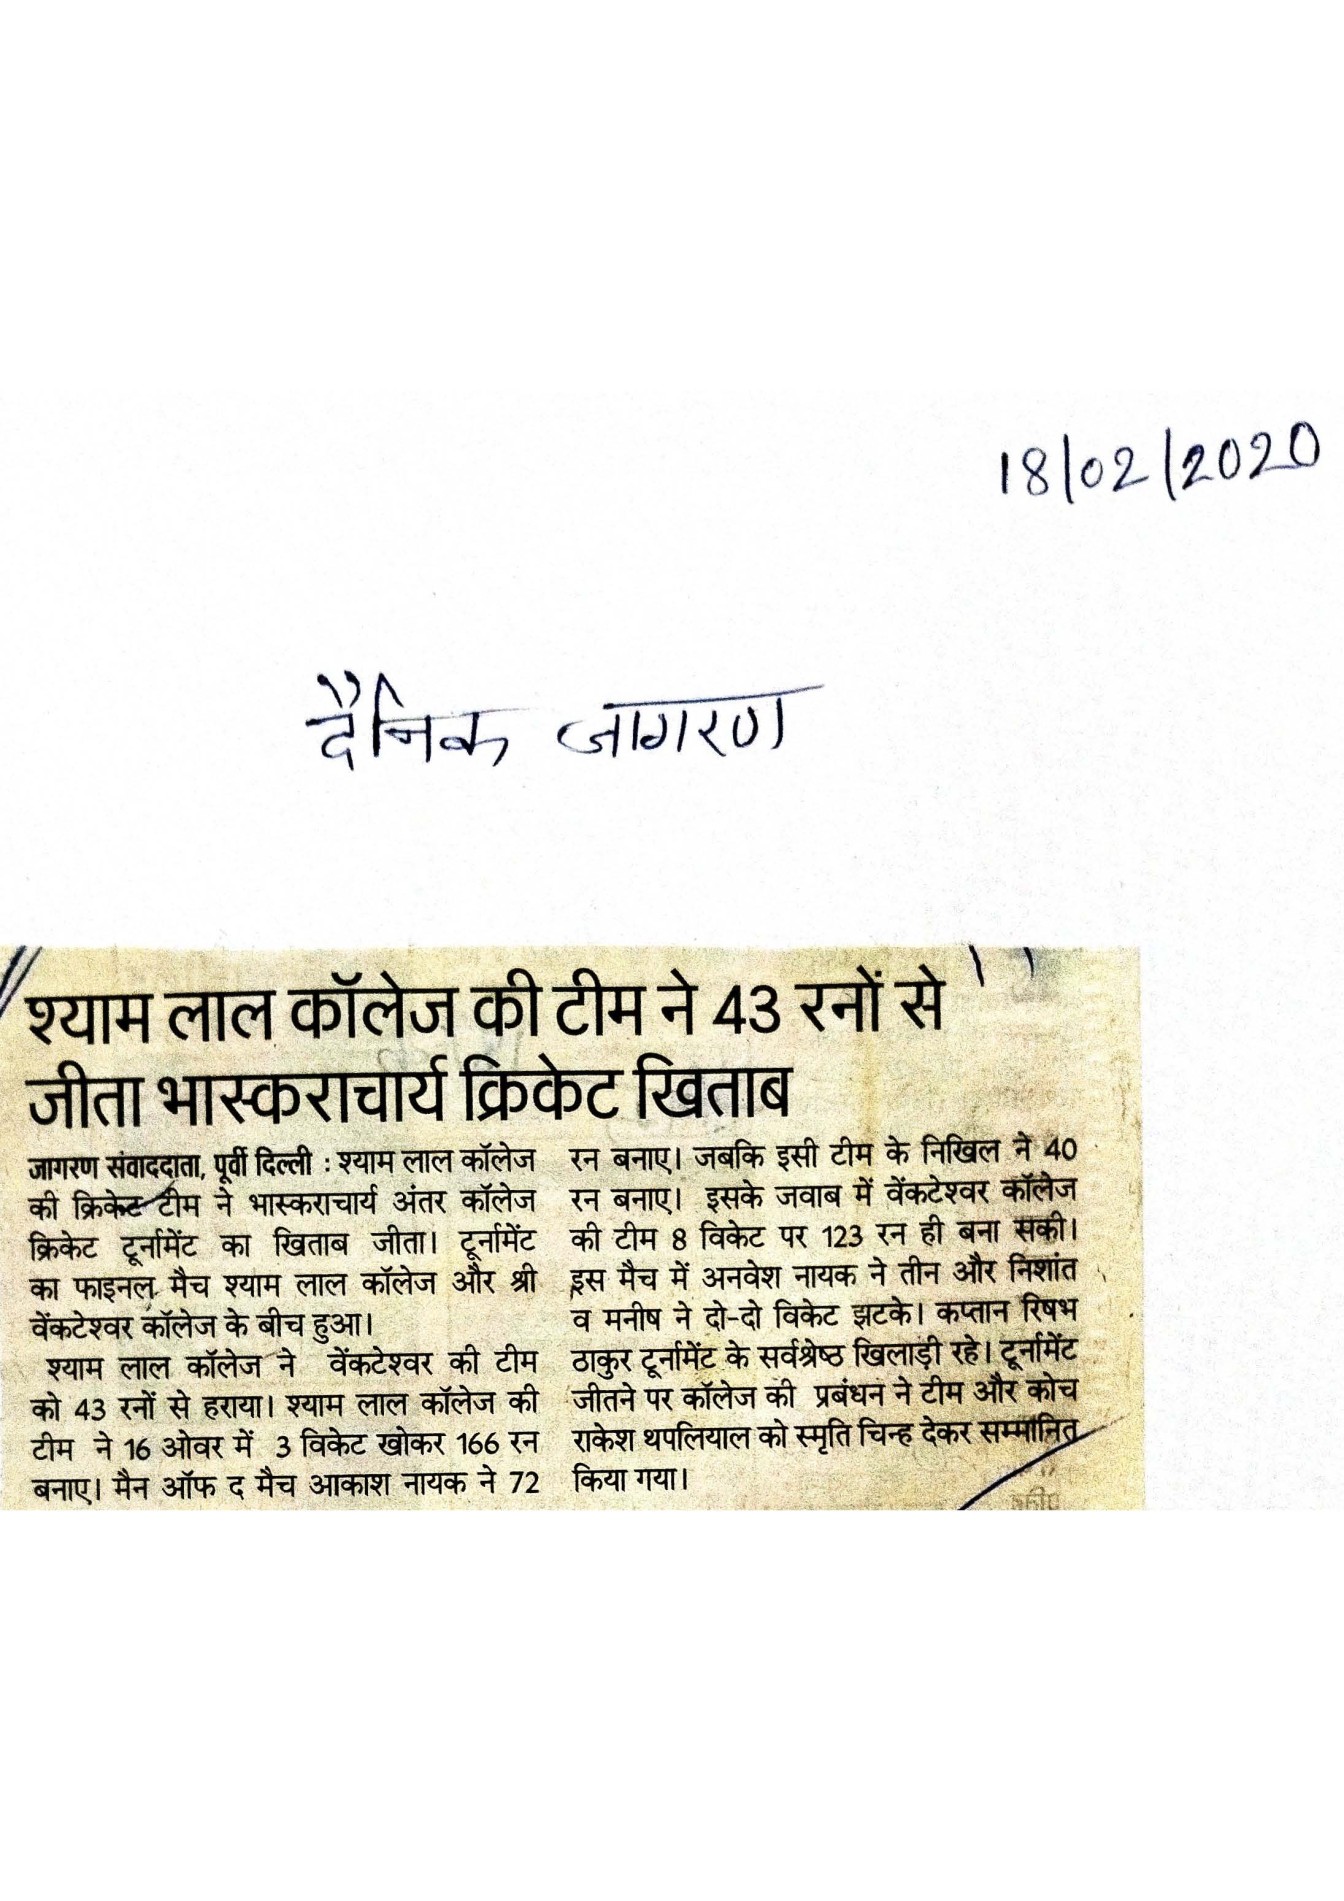 18/02/2020
दैनिक जागरण
श्याम लाल कॉलेज की टीम ने 43 रनों से
जीता भास्कराचार्य क्रिकेट खिताब
जागरण संवाददाता, पूर्वी दिल्ली : श्याम लाल कॉलेज
की क्रिकेट टीम ने भास्कराचार्य अंतर कॉलेज
क्रिकेट टूर्नामेंट का खिताब जीता। टूर्नामेंट
का फाइनल मैच श्याम लाल कॉलेज और श्री
वेंकटेश्वर कॉलेज के बीच हुआ।
श्याम लाल कॉलेज ने वेंकटेश्वर की टीम
को 43 रनों से हराया। श्याम लाल कॉलेज की
टीम ने 16 ओवर में 3 विकेट खोकर 166 रन
बनाए। मैन ऑफ द मैच आकाश नायक ने 72
रन बनाए। जबकि इसी टीम के निखिल ने 40
रन बनाए। इसके जवाब में वेंकटेश्वर कॉलेज
की टीम 8 विकेट पर 123 रन ही बना सकी।
इस मैच में अनवेश नायक ने तीन और निशांत
व मनीष ने दो-दो विकेट झटके। कप्तान रिषभ
ठाकुर टूर्नामेंट के सर्वश्रेष्ठ खिलाड़ी रहे। टूर्नामेंट
जीतने पर कॉलेज की प्रबंधन ने टीम और कोच
राकेश थपलियाल को स्मृति चिन्ह देकर सम्मानित
किया गया।